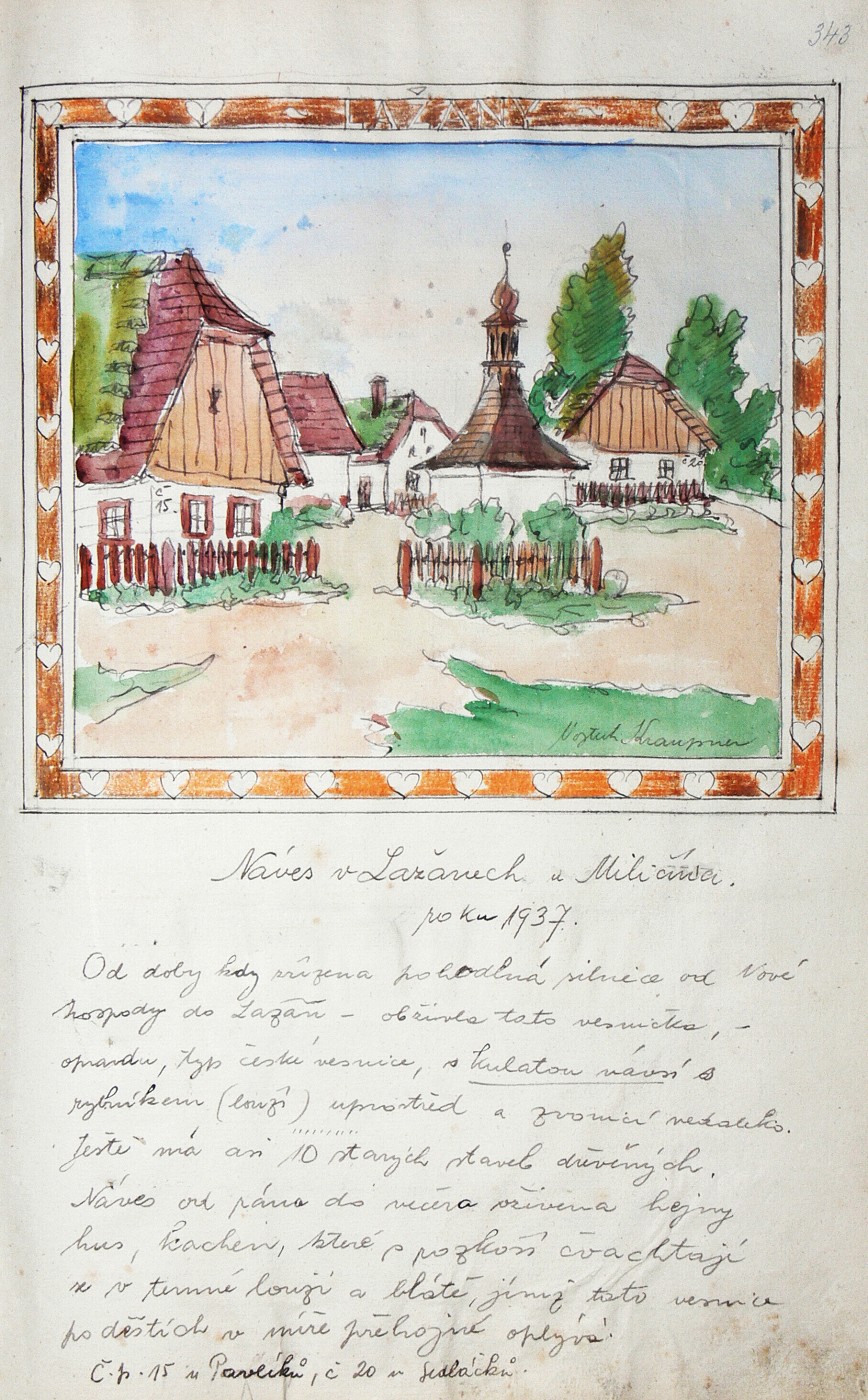 343
LAŽANY
č
15.
č 20
Vojtěch Kraupner
Náves v Lažanech u Miličína.
roku 1937.
Od doby kdy zřízena pohodlná silnice od Nové
hospody do Lažan – obživla tato vesnička, –
opravdu, typ české vesnice, s kulatou návsí s
rybníkem (louží) uprostřed a zvonicí nedaleko.
Ještě má asi 10 starých staveb dřevěných.
Náves od rána do večera oživena hejny
hus, kachen, které s rozkoší čvachtají
se v temné louži a blátě, jímž tato vesnice
po deštích v míře přehojné oplývá.
Č.p. 15 u Pavlíků, č 20 u Sedláčků.